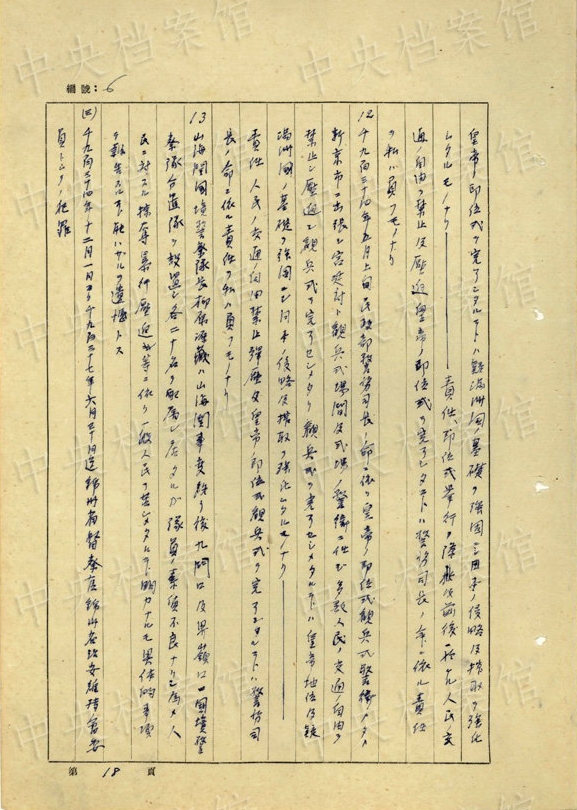 編號：6
皇帝ノ即位式ヲ完了シタルコトハ偽満洲国ノ基礎ヲ強固ニシ日本ノ侵略及搾取ヲ強化
シタルモノナリ──責任、即位式挙行ノ際此前後ニ於ケル人民交
通自由ヲ禁止及圧迫皇帝ノ即位式ヲ完了シタコトハ警務司長ノ命ニ依ル責任
ヲ私ハ負フモノナリ
12 千九百三十四年五月上旬民政部警務司長ノ命ニ依リ皇帝ノ即位式観兵式警衛ノタメ
新京市ニ出張シ宮廷附ト観兵式場間及式場ノ警衛ニ任ジ多数人民ノ交通ノ自由ヲ
禁止シ圧迫シ観兵式ヲ完了セシメタリ観兵式ヲ完了セシメタルコトハ皇帝地位及偽
満洲国ノ基礎ヲ強固ニシ日本ノ侵略及搾取ヲ強化シタルモノナリ──
責任 人民ノ交通自由禁止弾圧及皇帝ノ即位式観兵式ヲ完了シタルコトハ警務司
長ノ命ニ依ル責任ヲ私ハ負フモノナリ
13 山海関国境警察隊長柳原源蔵ハ山海関事変終リ後九門口及界嶺口ニ国境警
察隊分遣隊ヲ設置シ各二十名ヲ配属シ居タルガ隊員ノ素質不良ナリシ為メ人
民ニ対スル掠奪暴行圧迫等ニ依リ一般人民ヲ苦シメタルコト明カナルモ具体的事項
ヲ報告スルコト能ハザルヲ遺憾トス
(三) 千九百三十四年十二月一日ヨリ千九百三十七年六月三十日迄錦州省督察官錦州省治安維持会委
員トシテノ犯罪
第 18 頁
中央档案馆